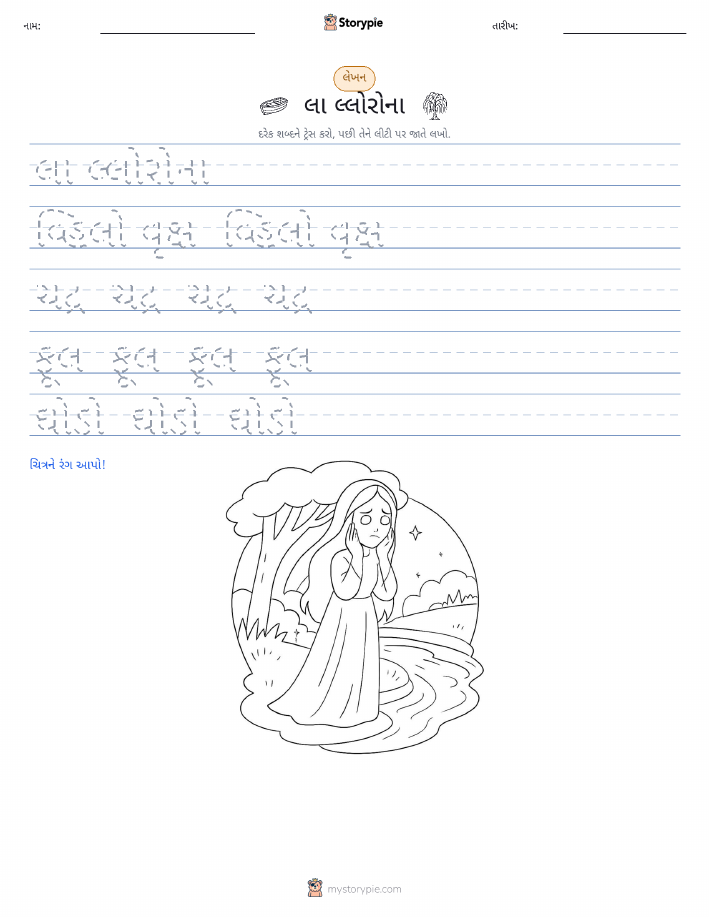 નામ:
Storypie
તારીખ:
લેખન
લા લ્લોરોના
દરેક શબ્દને ટ્રેસ કરો, પછી તેને લીટી પર જાતે લખો.
લા લ્લોરોના
વિઝેલો વૃક્ષ વિઝેલો વૃક્ષ
ચંદ્ર ચંદ્ર ચંદ્ર ચંદ્ર
ફૂલ ફૂલ ફૂલ ફૂલ
ઘોડો ઘોડો ઘોડો
ચિત્રને રંગ આપો!
mystorypie.com